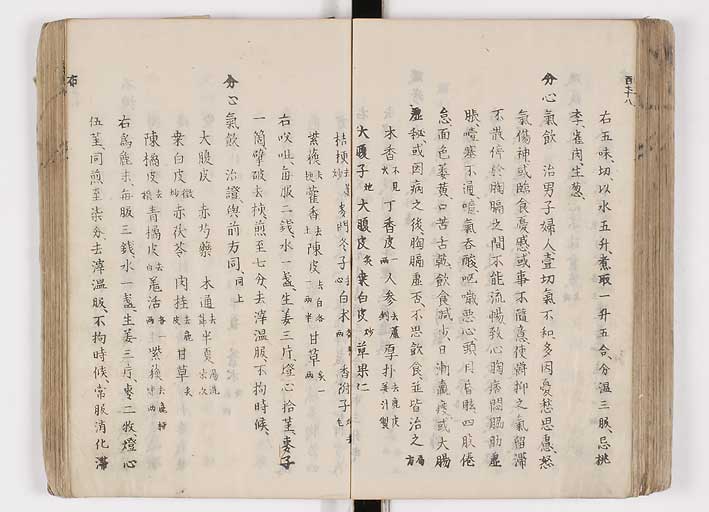 右五味切以水五升煮取一升五合分温三服忌桃
李雀肉生葱
分心氣飲 治男子婦人壹切氣不和多因憂愁思慮怒
氣傷神或臨食憂慼或事不隨意使鬱抑之氣留滞
不散停於胸膈之間不能流暢致心胸痞悶脇肋虚
脹噎塞不通噫氣吞酸嘔噦悪心頭目昏眩四肢倦
怠面色萎黄口苦舌乾飲食减少日漸羸瘦或大腸
虚秘或因病之後胸膈虚否不思飲食並皆治之 局方
木香 不見火 丁香皮 一两 人参 去蘆 厚朴 去麁皮 姜汁製
大腹子 大腹皮 炙 桒白皮 炒 草果仁
桔梗 麦門冬 去心 白朮 香附子
紫蘓 藿香 陳皮 去白 甘草 炙一两
右㕮咀每服二錢水一盞生姜三片燈心拾莖
一箇擘破去核煎至七分去滓温服不拘時候
分心氣飲 治證與前方同 同上
大腹皮 赤芍藥 木通 半夏 湯洗
桒白皮 微炒 赤茯苓 肉桂 去麁皮 甘草 炙
陳橘皮 青橘皮 去白 羗活 各一两 紫蘓
右為麁末每服三錢水一盞生姜三片枣二枚燈心
伍莖同煎至柒分去滓温服不拘時候常服消化滞